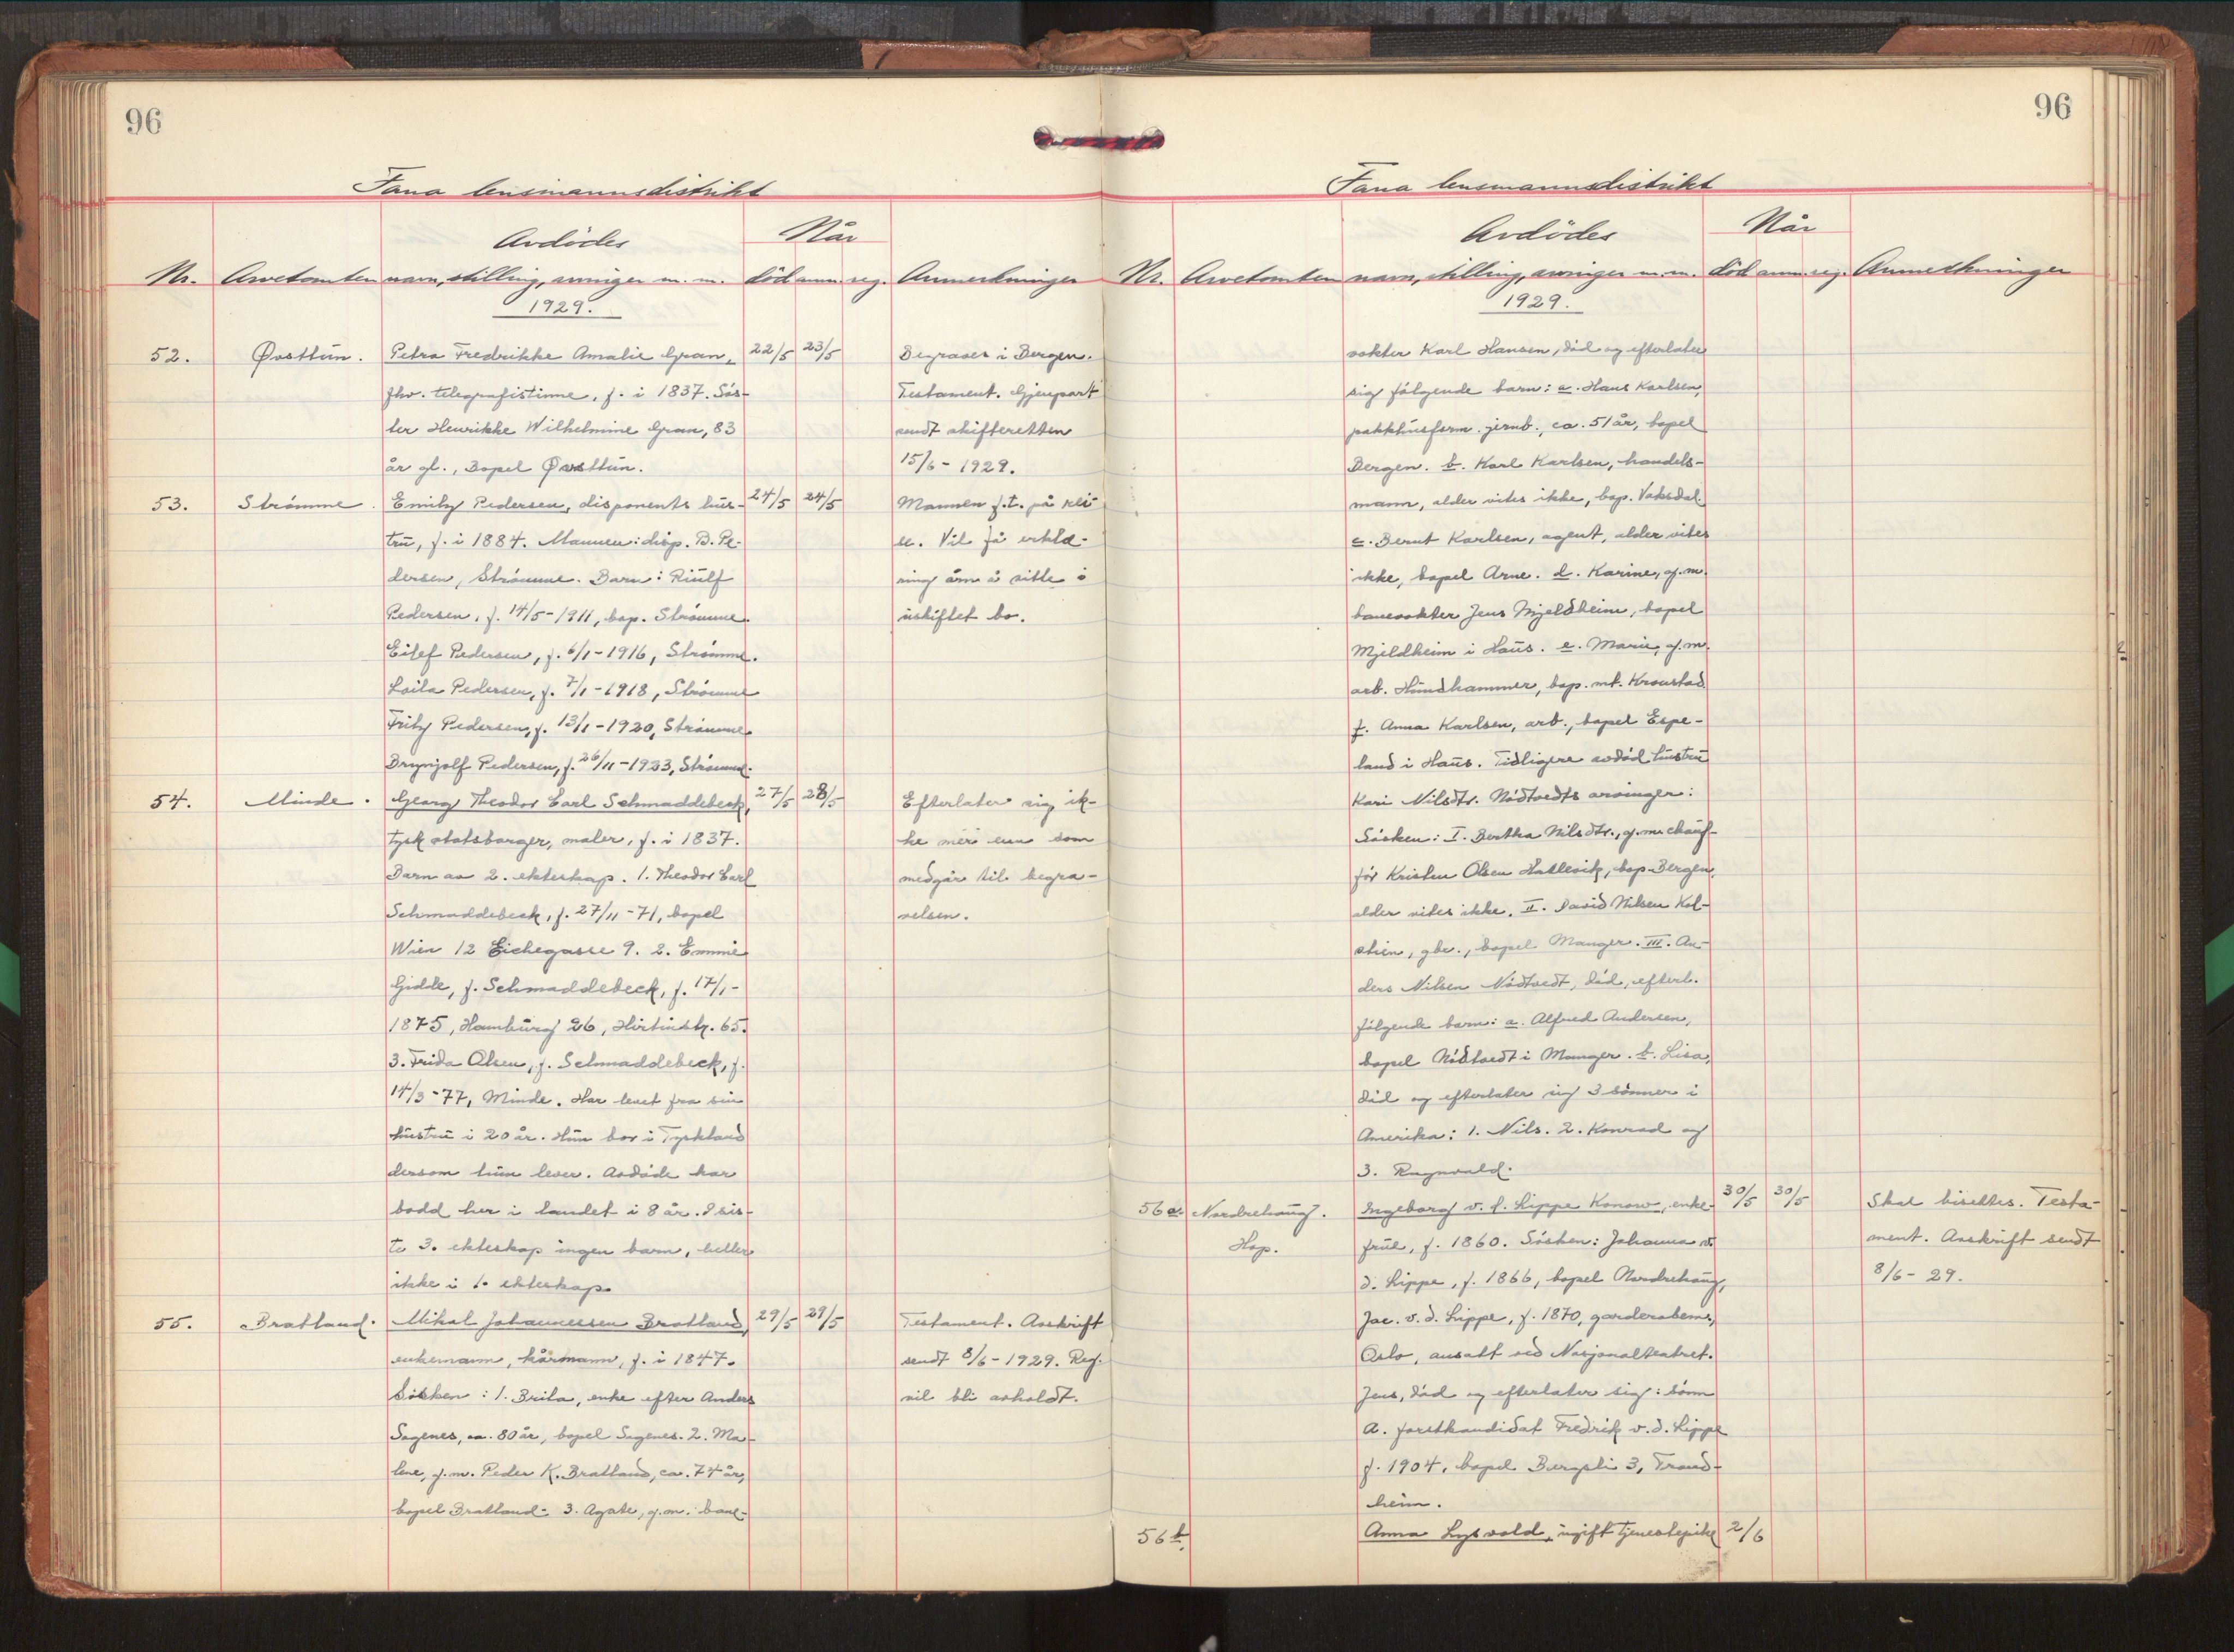 96
Fana lensmannsdistrikt
Avdödes
Når
Nr. Arvetomten navn, stilling, arvinger m. m. död anm. reg. Anmerkninger
1929.
52. Øvsttun. Petra Fredrikke Amalie Gran, 22/5 23/5 Begraves i Bergen.
fhv. telegrafistinne, f. i 1837. Sös- Testament. Gjenpart
ter Henrikke Wilhelmine Gran, 83 sendt skifteretten
år gl., Bopel Øvsttun. 15/6 - 1929.
53. Strömme. Emily Pedersen, disponents hus- 24/5 24/5 Mannen f.t. på rei-
tru, f. i 1884. Mannen: disp. B. Pe- se. Vil få erklæ-
dersen, Strömme. Barn: Riulf ring om å sitte i
Pedersen, f. 14/5 - 1911, bop. Strömme. uskiftet bo.
Eilef Pedersen, f. 6/1 - 1916, Strömme.
Laila Pedersen, f. 7/1 - 1918, Strömme
Frity Pedersen, f. 13/1 - 1920, Strömme
Brynjolf Pedersen, f. 26/11 - 1923, Strömme.
54. Minde. Georg Theodor Carl Schmaddebeck, 27/5 28/5 Efterlater sig ik-
tysk statsborger, maler, f. i 1837. ke mer enn som
Barn av 2. ekteskap. 1. Theodor Carl medgår til begra-
Schmaddebeck, f. 27/11 - 71, bopel velsen.
Wien 12 Eichegasse 9. 2. Emmie
Gidde, f. Schmaddebeck, f. 17/1 -
1875, Hamburg 26, 65.
3. Frida Olsen, f. Schmaddebeck, f.
14/3 - 77, Minde. Har levet fra sin
hustru i 20 år. Hun bor i Tyskland
dersom hun lever. Avdöde har
bodd her i landet i 8 år. I sis-
te 3. ekteskap ingen barn, heller
ikke i 1. ekteskap.
55. Bratland. Mikal Johannessen Bratland, 29/5 29/5 Testament. Avskrift
enkemann, kårmann, f. i 1847. sendt 8/6 - 1929. Reg.
Sösken: 1. Brita, enke efter Anders vil bli avholdt.
Sagenes, ca. 80 år, bopel Sagenes. 2. Ma-
lene, g. m. Peder K. Bratland, ca. 74 år,
bopel Bratland. 3. Agate, g. m. bane-
96
Fana lensmannsdistrikt
Avdödes
Når
Nr. Arvetomten navn, stilling, arvinger m. m. död anm. reg. Anmerkninger
1929.
vokter Karl Hansen, död og efterlater
sig fölgende barn: a. Hans Karlsen,
pakkhusform. jernb., ca. 51 år, bopel
Bergen. b. Karl Karlsen, handels-
mann, alder vites ikke, bop. Vaksdal.
c. Bernt Karlsen, agent, alder vites
ikke, bopel Arne. d. Karine, g. m.
banevokter Jens Mjeldheim, bopel
Mjeldheim i Haus. e. Marie, g. m.
arb. Hundhammer, bop. mt. Kronstad
f. Anna Karlsen, arb., bopel Espe-
land i Haus. Tidligere avdöd hustru
Kari Nilsdtr. Nödtvedts arvinger:
Sösken: I. Bertha Nilsdtr., g. m. chauf-
för Kristen Olsen Hatlevik, bop. Bergen,
alder vites ikke. II. David Nilsen Kol-
stien, gbr., bopel Manger. III. An-
ders Nilsen Nödtvedt, död, efterl.
fölgende barn: a. Alfred Andersen,
bopel Nödtvedt i Manger. b. Lisa,
död og efterlater sig 3 sönner i
Amerika: 1. Nils. 2. Konrad og
3. Ragnvald.
56 a. Nordrehaug, Ingeborg v. d. Lippe Konow, enke- 30/5 30/5 Skal bisettes. Testa-
Hop. frue, f. 1860. Sösken: Johanna v. ment. Avskrift sendt
d. Lippe, f. 1866, bopel Nordrehaug, 8/6 - 29.
Jac. v. d. Lippe, f. 1870, garderobem.,
Oslo, ansatt ved Nasjonalteatret.
Jens, död og efterlater sig: sönn
A. forstkandidat Fredrik v. d. Lippe
f. 1904, bopel Bergsli 3, Trond-
heim.
56 b. Anna Lysvold, ugift tjenestepike 2/6